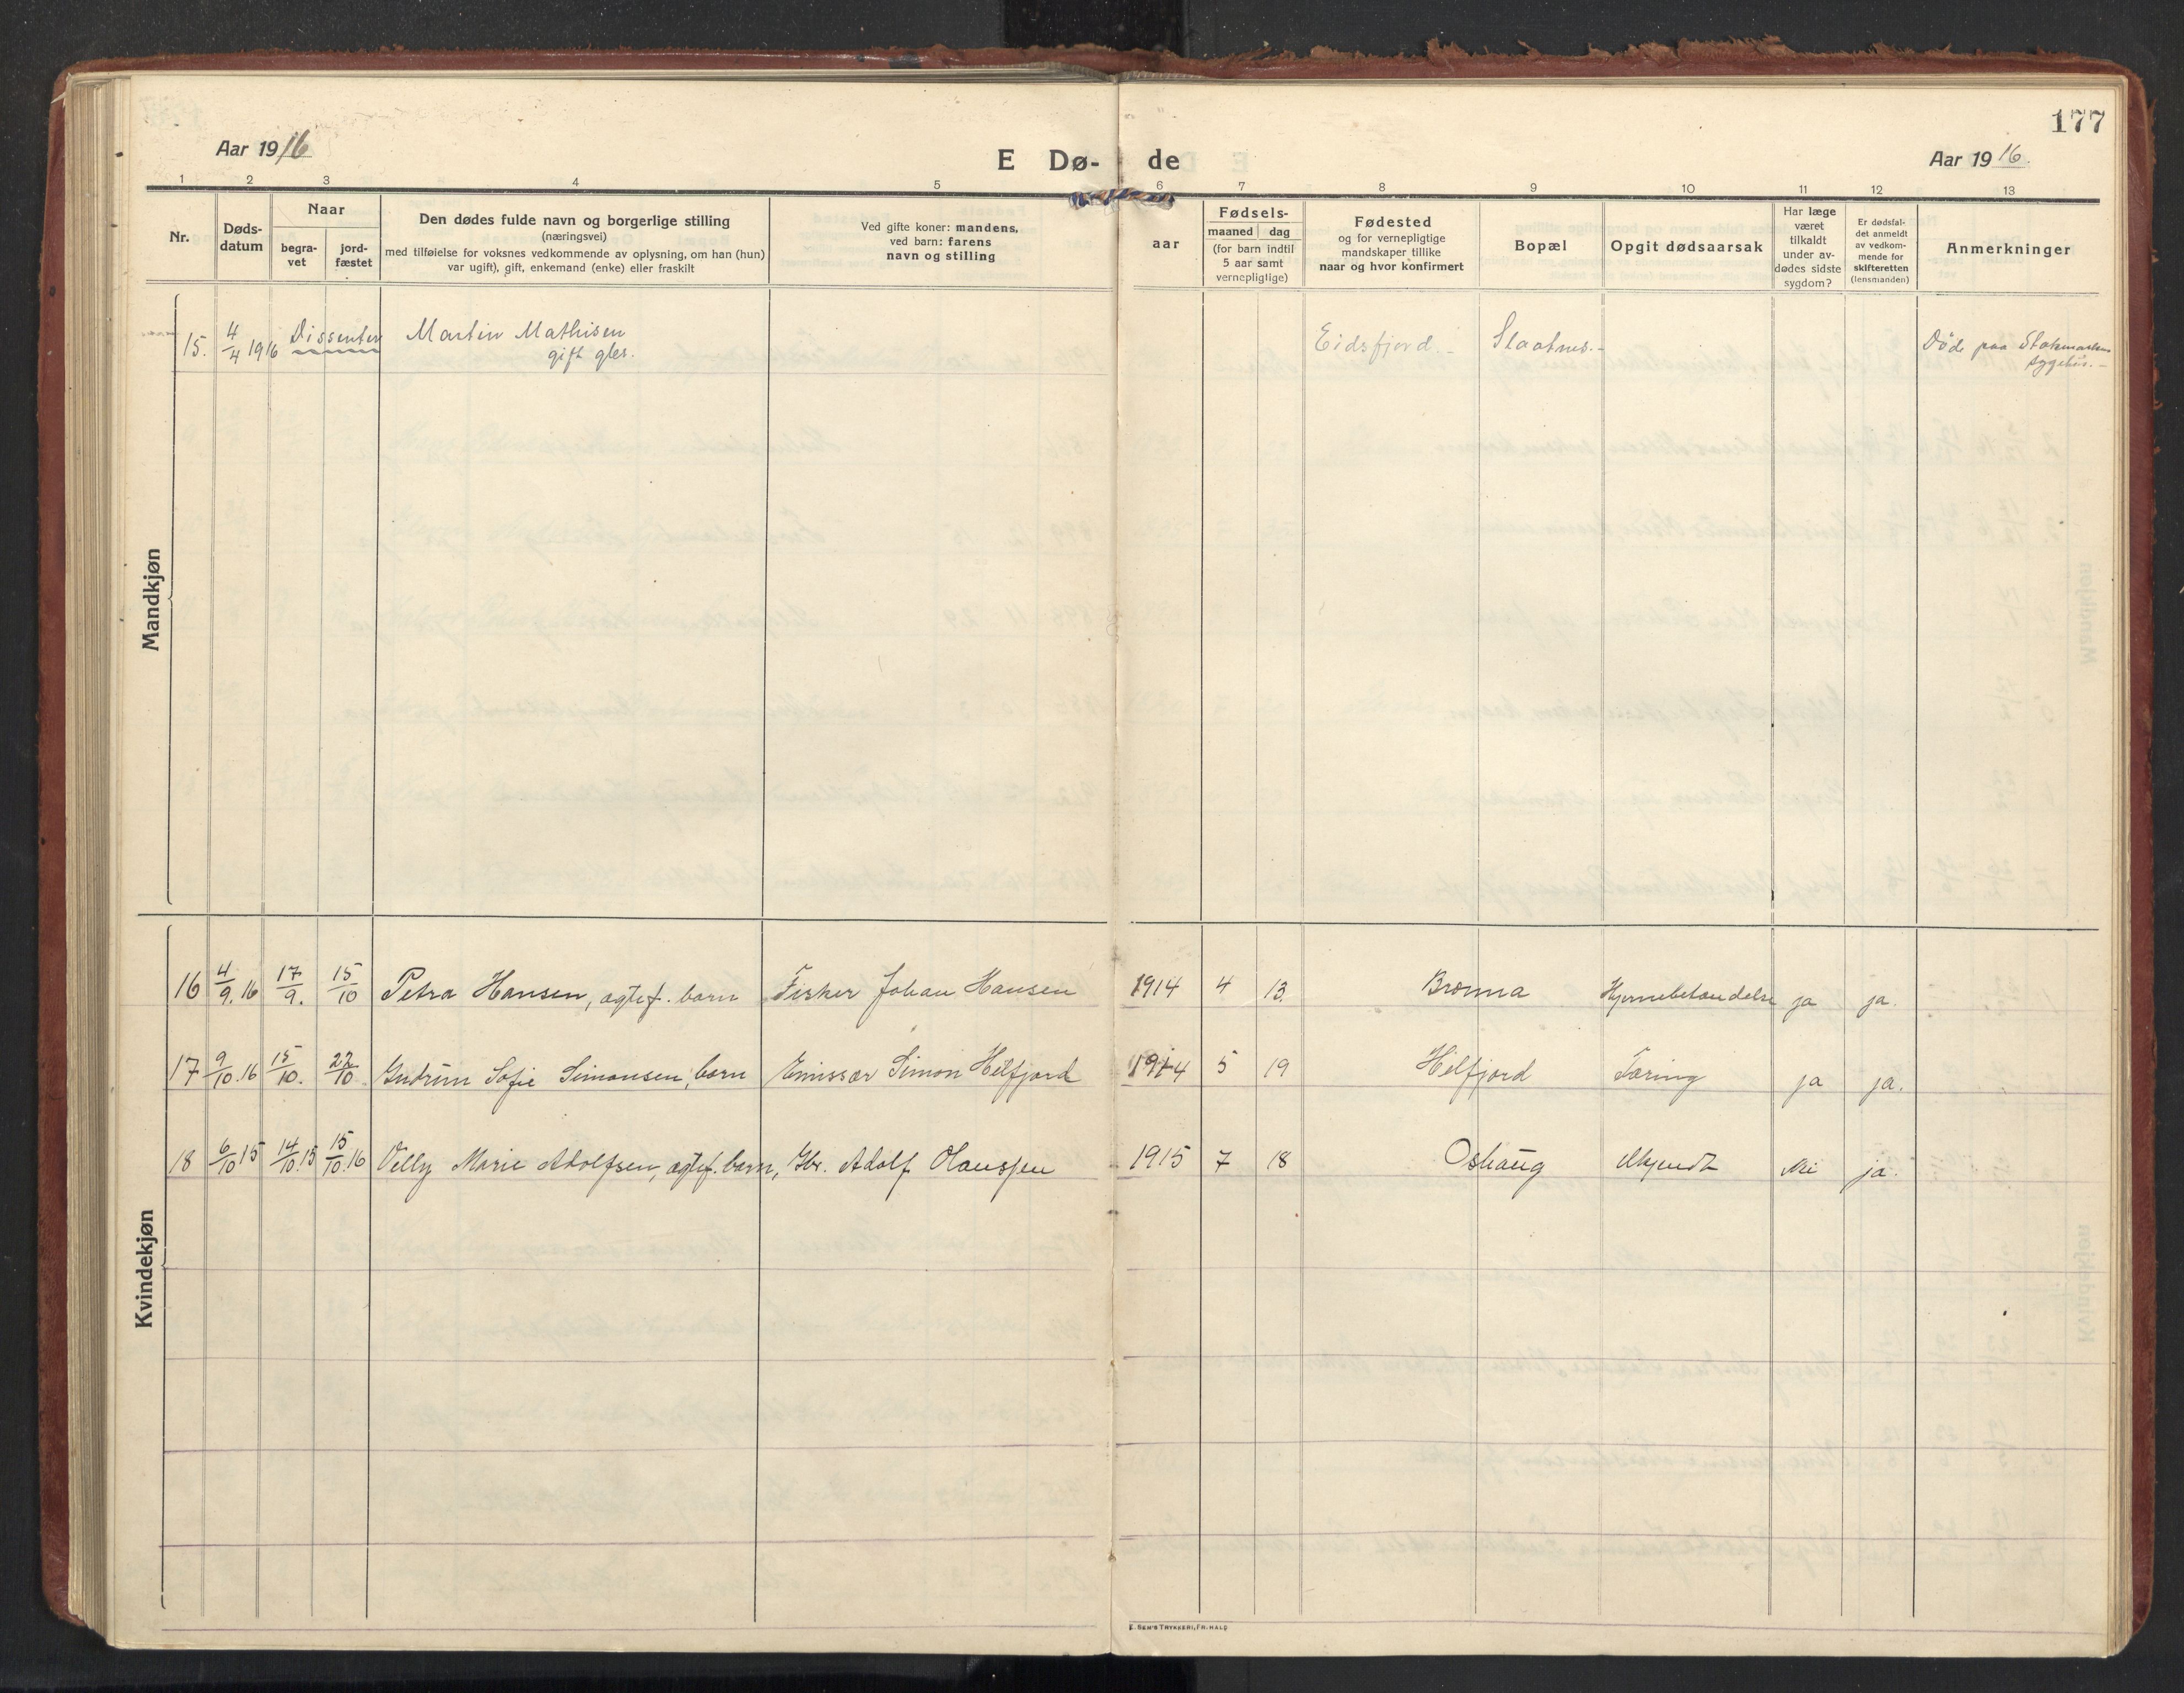 177
Aar 1916
E Dø- de
Aar 1916.
1 2 3 4 5 6 7 8 9 10 11 12 13
Nr.
Døds-
datum
Naar
begra-
vet
jord-
fæstet
Den dødes fulde navn og borgerlige stilling
(næringsvei)
med tilføielse for voksnes vedkommende av oplysning, om han (hun)
var ugift), gift, enkemand (enke) eller fraskilt
Ved gifte koner: mandens,
ved barn: farens
navn og stilling
aar
Fødsels-
maaned dag
(for barn indtil
5 aar samt
vernepligtige)
Fødested
og for vernepligtige
mandskaper tillike
naar og hvor konfirmert
Bopæl
Opgit dødsaarsak
Har læge
været
tilkaldt
under av-
dødes sidste
sygdom?
Er dødsfal-
det anmeldt
av vedkom-
mende for
skifteretten
(lensmanden)
Anmerkninger
Mandkjøn
15. 4/4 1916 Dissenter Martin Mathisen Eidsfjord.- Slaatnes.- Døde paa Stokmarkn
gift gbr. sygehus.-
Kvindekjøn
16 4/9.16 17/9. 15/10 Petra Hansen, ægtef. barn Fisker Johan Hansen 1914 4 13. Bremna Hjernebetændelse ja ja.
17 9/10.16 15/10. 22/10 Gudrun Sofie Simonsen, barn Emissær Simon Hilfjord 1914 5 19 Hilfjord Tæring ja ja.
18 6/10 15 14/10.15 15/10.16 Velly Marie Adolfsen, ægtef. barn, Gbr. Adolf Olaussen 1915 7 18 Oshaug Ukjendt Nei ja.
E. SEM'S TRYKKERI, FR.HALD